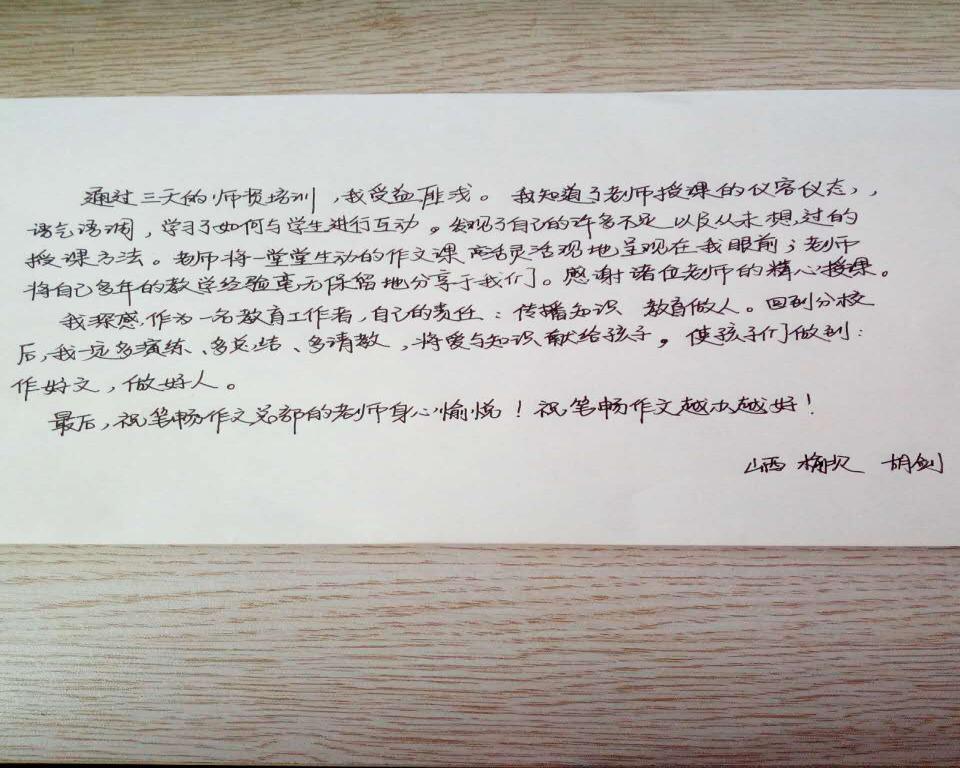 通过三天的师资培训，我受益匪浅。我知道了老师授课的仪容仪态，，
语气语调，学习了如何与学生进行互动。发现了自己的许多不足以及从未想过的
授课方法。老师将一堂堂生动的作文课 活灵活现地呈现在我眼前；老师
将自己多年的教学经验毫无保留地分享于我们。感谢诸位老师的精心授课。
我深感，作为一名教育工作者，自己的责任：传播知识 教育做人。回到分校
后，我一定多演练、多总结、多请教，将爱与知识献给孩子，使孩子们做到：
作好文，做好人。
最后，祝笔畅作文总部的老师身心愉悦！祝笔畅作文越办越好！
山西 胡剑